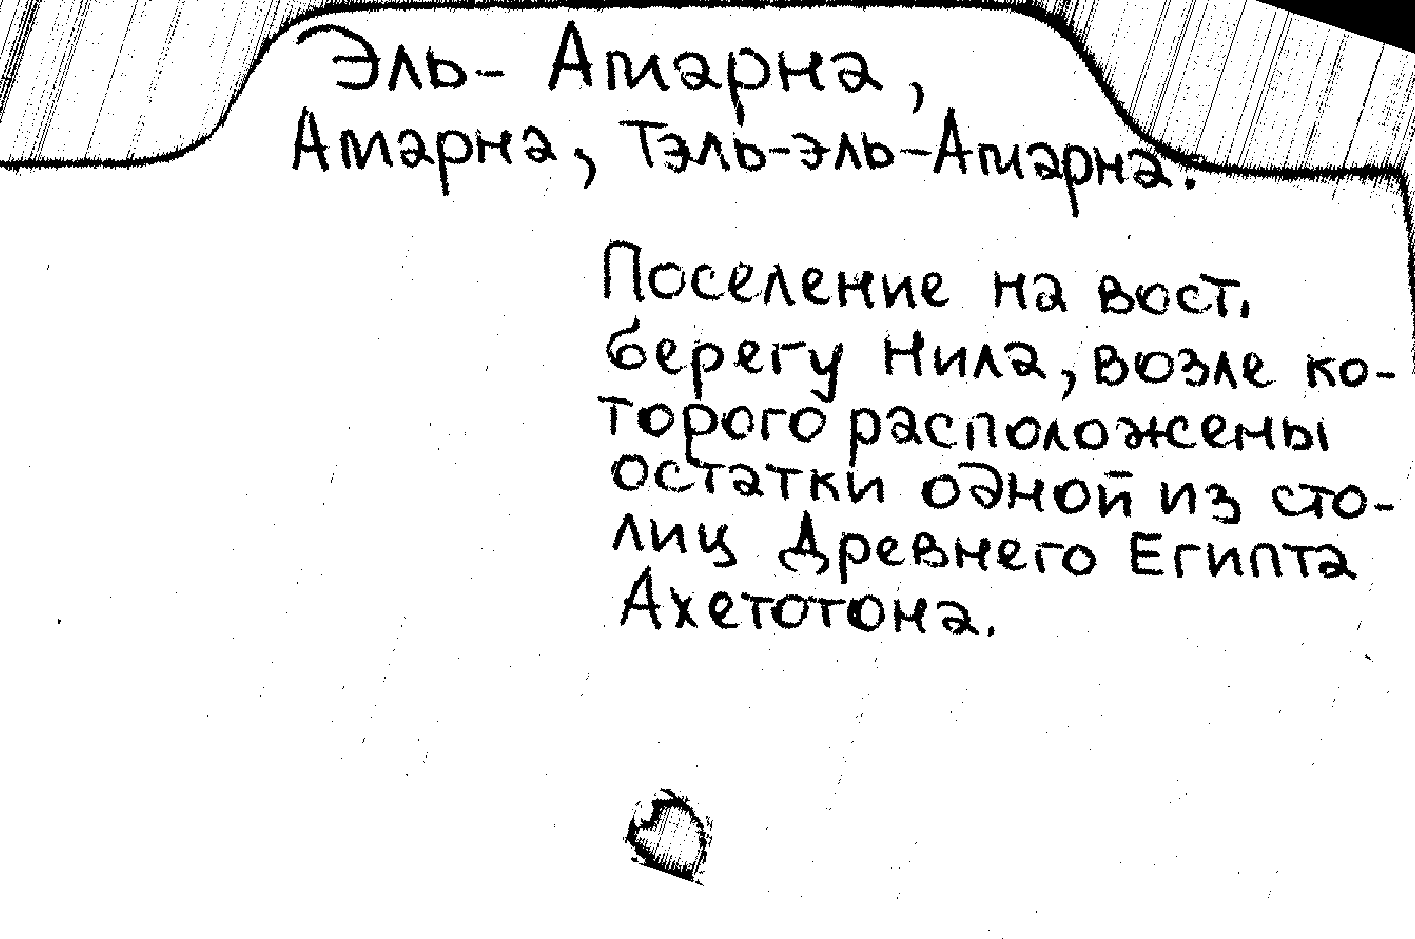 Эль- Амарна,
Амарна, Тэль-эль-Амарна.
Поселение на вост.
берегу Нила, возле ко-
торого расположены
остатки одной из сто-
лиц Древнего Египта
Ахетотона.